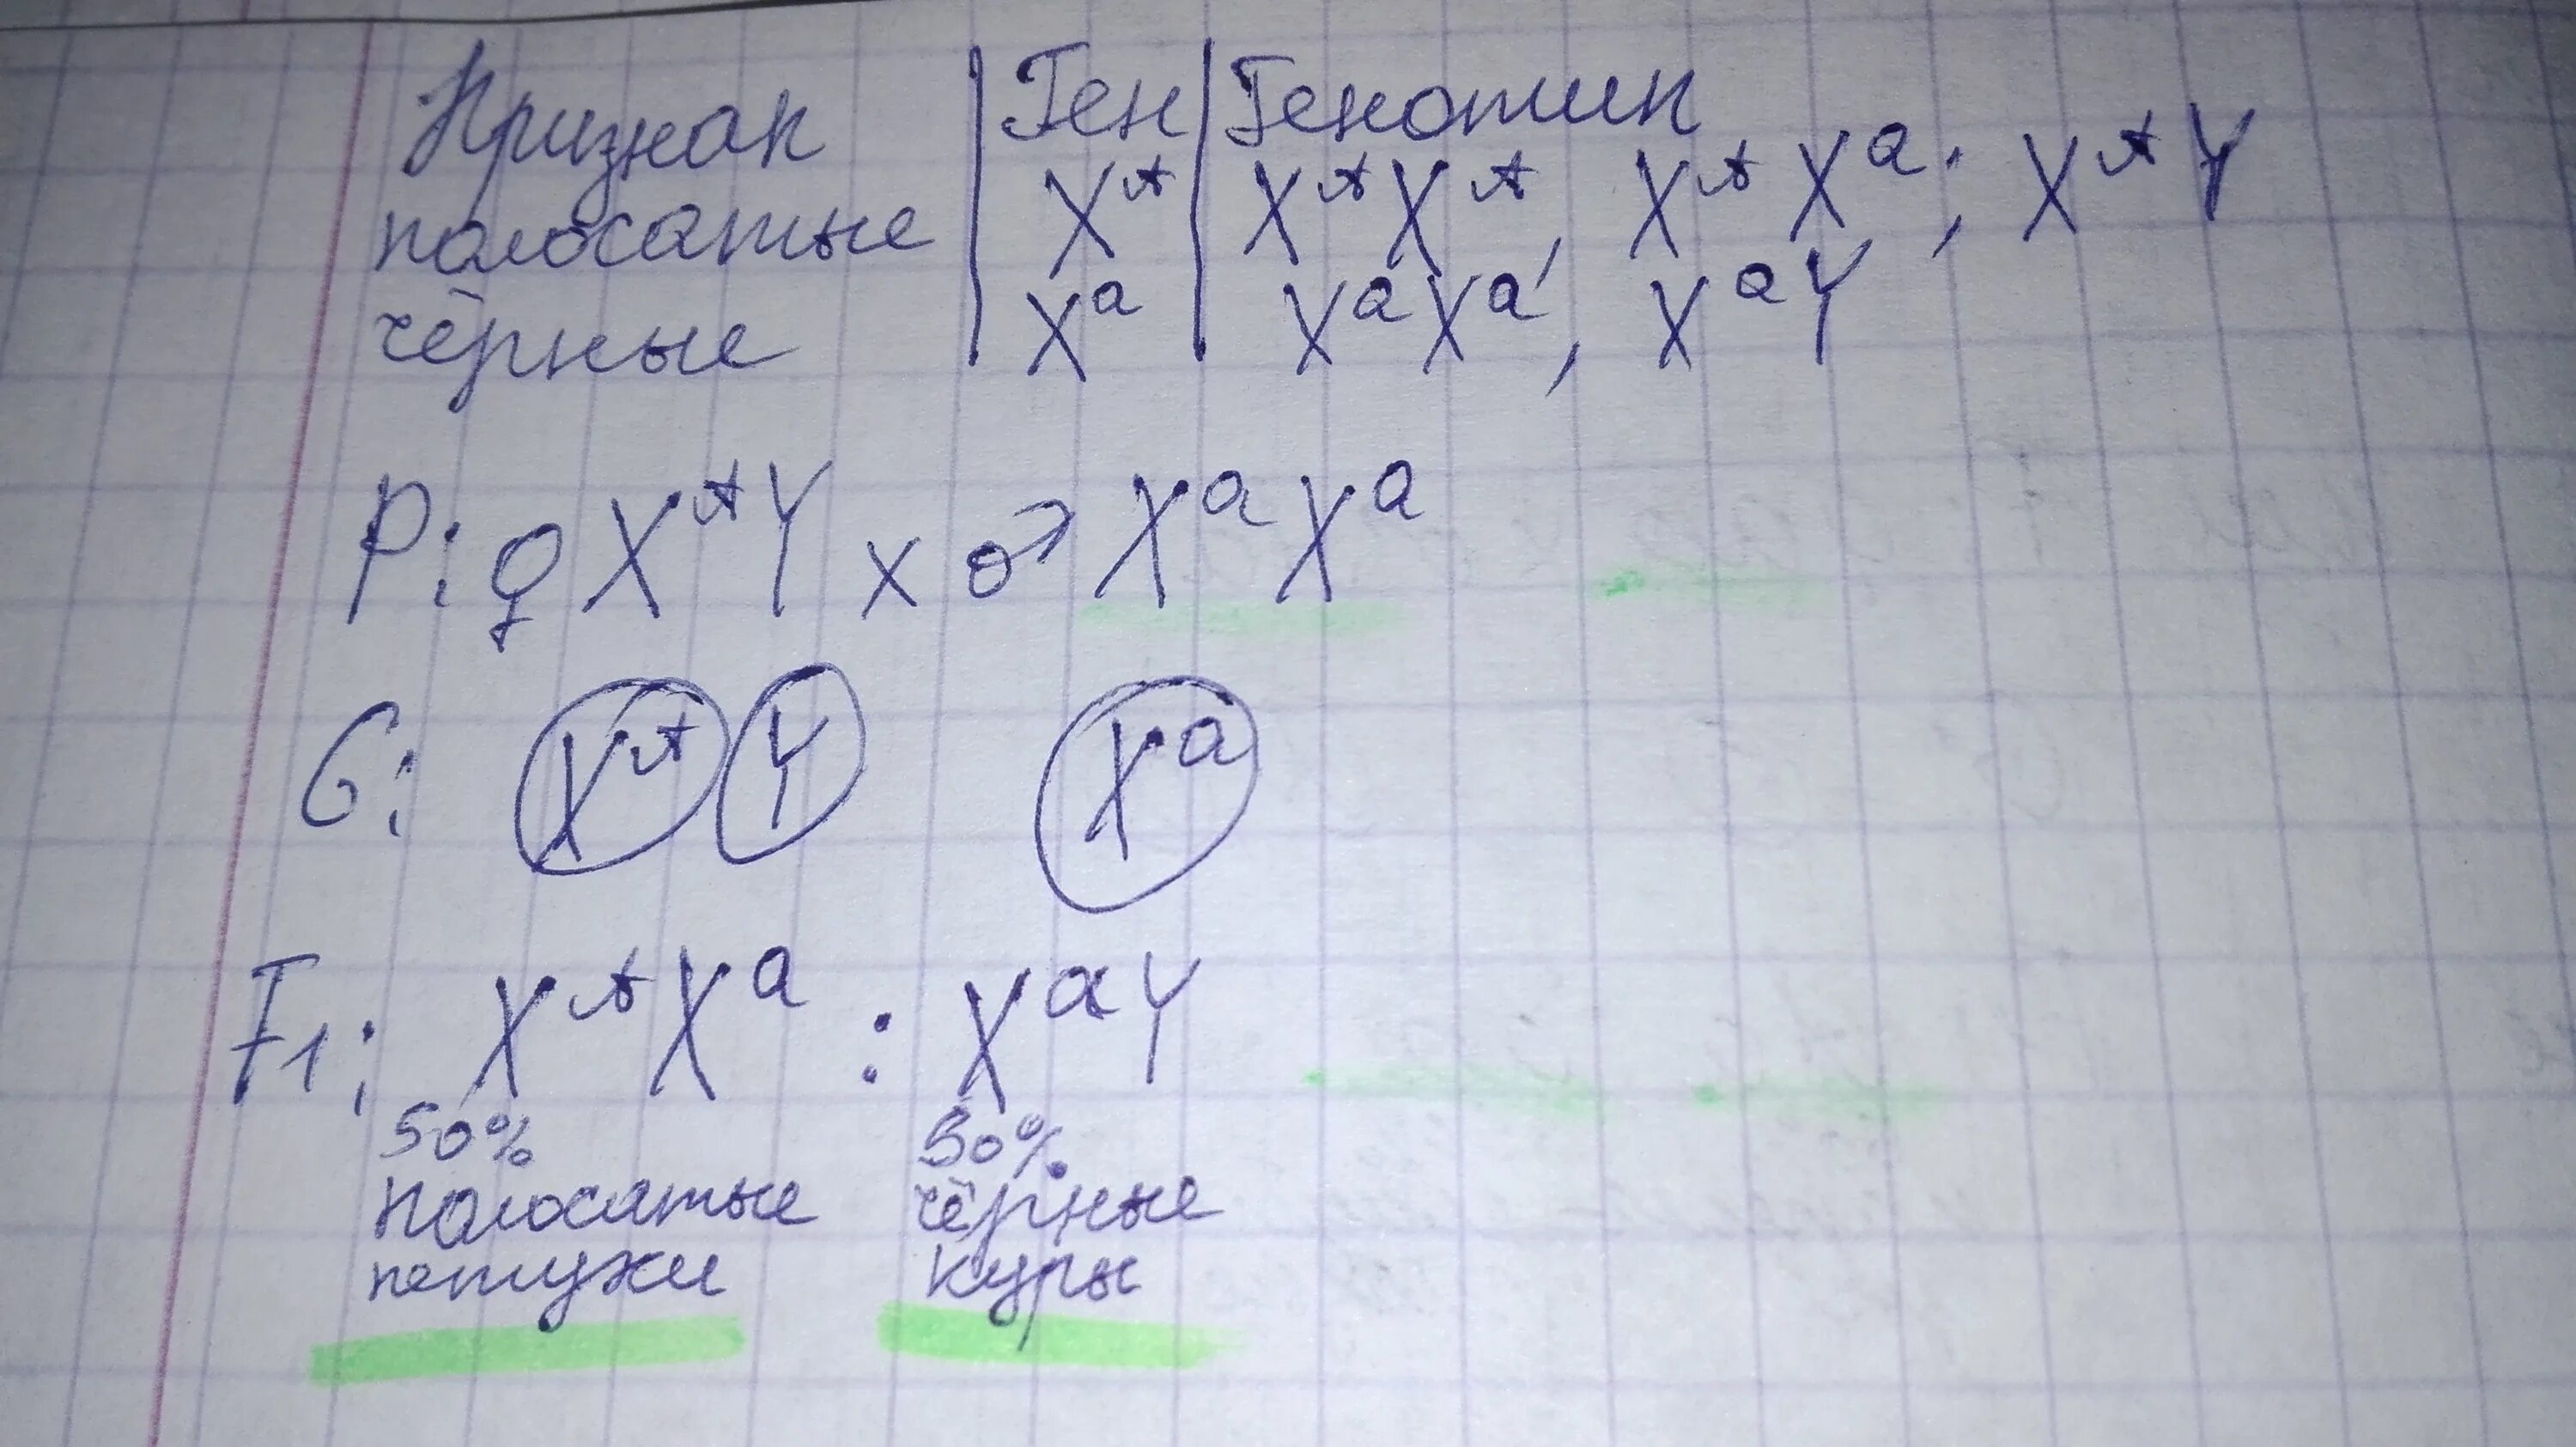 Признак | Ген | Генотип
полосатые | Xᴬ | XᴬXᴬ, XᴬXᵃ; XᴬY
чёрные | Xᵃ | XᵃXᵃ, XᵃY
P: ♀ XᴬY x ♂ XᵃXᵃ
G: Xᴬ Y Xᵃ
F1: XᴬXᵃ : XᵃY
50% 50%
полосатые чёрные
петухи куры